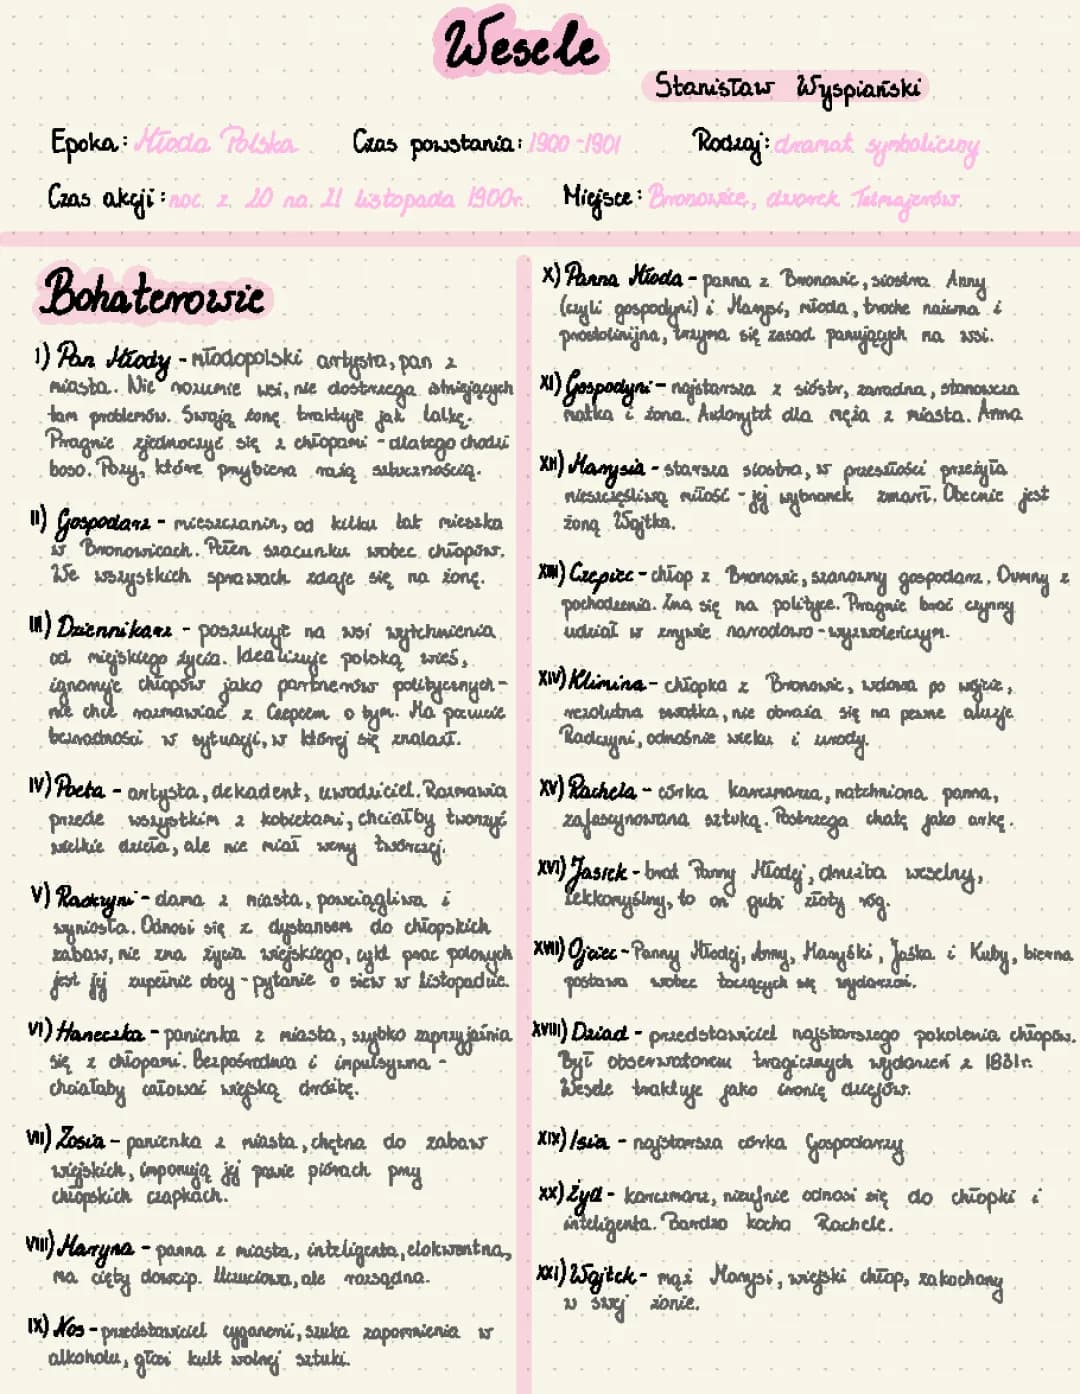 Wesele
Stanisław Wyspiański
Epoka: Młoda Polska Czas powstania: 1900-1901 Rodzaj: dramat symboliczny
Czas akcji: noc z 20 na 21 listopada 1900r. Miejsce: Bronowice, dworek Tetmajerów.
Bohaterowie
I) Pan Młody - młodopolski artysta, pan z
miasta. Nie rozumie wsi, nie dostrzega istniejących
tam problemów. Swoją żonę traktuje jak lalkę.
Pragnie zjednoczyć się z chłopami - dlatego chodzi
boso. Pozy, które przybiera rażą sztucznością.
II) Gospodarz - mieszczanin, od kilku lat mieszka
w Bronowicach. Pełen szacunku wobec chłopów.
We wszystkich sprawach zdaje się na żonę.
III) Dziennikarz - poszukuje na wsi wytchnienia
od miejskiego życia. Idealizuje polską wieś,
ignoruje chłopów jako partnerów politycznych -
nie chce rozmawiać z Czepcem o tym. Ma poczucie
bezradności w sytuacji, w której się znalazł.
IV) Poeta - artysta, dekadent, uwodziciel. Rozmawia
przede wszystkim z kobietami, chciałby tworzyć
wielkie dzieła, ale nie miał weny twórczej.
V) Radczyni - dama z miasta, powciągliwa i
wyniosła. Odnosi się z dystansem do chłopskich
zabaw, nie zna życia wiejskiego, cykl prac polowych
jest jej zupełnie obcy - pytanie o siew w listopadzie.
VI) Haneczka - panienka z miasta, szybko zaprzyjaźnia
się z chłopami. Bezpośrednia i impulsywna -
chciałaby całować wiejską drużbę.
VII) Zosia - panienka z miasta, chętna do zabaw
wiejskich, imponują jej pawie piórach przy
chłopskich czapkach.
VIII) Maryna - panna z miasta, inteligenta, elokwentna,
ma cięty dowcip. Uczuciowa, ale rozsądna.
IX) Nos - przedstawiciel cyganerii, szuka zapomnienia w
alkoholu, głosi kult wolnej sztuki.
X) Panna Młoda - panna z Bronowic, siostra Anny
(czyli gospodyni) i Marysi, młoda, troche naiwna i
prostolinijna, trzyma się zasad panujących na wsi.
XI) Gospodyni - najstarsza z sióstr, zaradna, stanowcza
matka i żona. Autorytet dla męża z miasta. Anna
XII) Marysia - starsza siostra, w przeszłości przeżyła
nieszczęśliwą miłość - jej wybranek zmarł. Obecnie jest
żoną Wojtka.
XIII) Czepiec - chłop z Bronowic, szanowny gospodarz. Dumny z
pochodzenia. Zna się na polityce. Pragnie brać czynny
udział w zrywie narodowo-wyzwoleńczym.
XIV) Klimina - chłopka z Bronowic, wdowa po wójcie,
rezolutna swatka, nie obraża się na pewne aluzje
Radczyni, odnośnie wieku i urody.
XV) Rachela - córka karczmarza, natchniona panna,
zafascynowana sztuką. Postrzega chatę jako arkę.
XVI) Jasiek - brat Panny Młodej, drużba weselny,
lekkomyślny, to on gubi złoty róg.
XVII) Ojciec - Panny Młodej, Anny, Maryśki, Jaśka i Kuby, bierna
postawa wobec toczących się wydarzeń.
XVIII) Dziad - przedstawiciel najstarszego pokolenia chłopów.
Był obserwatorem tragicznych wydarzeń z 1831r.
Wesele traktuje jako ironię dziejów.
XIX) Isia - najstarsza córka Gospodarzy
XX) Żyd - karczmarz, nieufnie odnosi się do chłopki i
inteligenta. Bardzo kocha Rachele.
XXI) Wojtek - mąż Marysi, wiejski chłop, zakochany
w swej żonie.